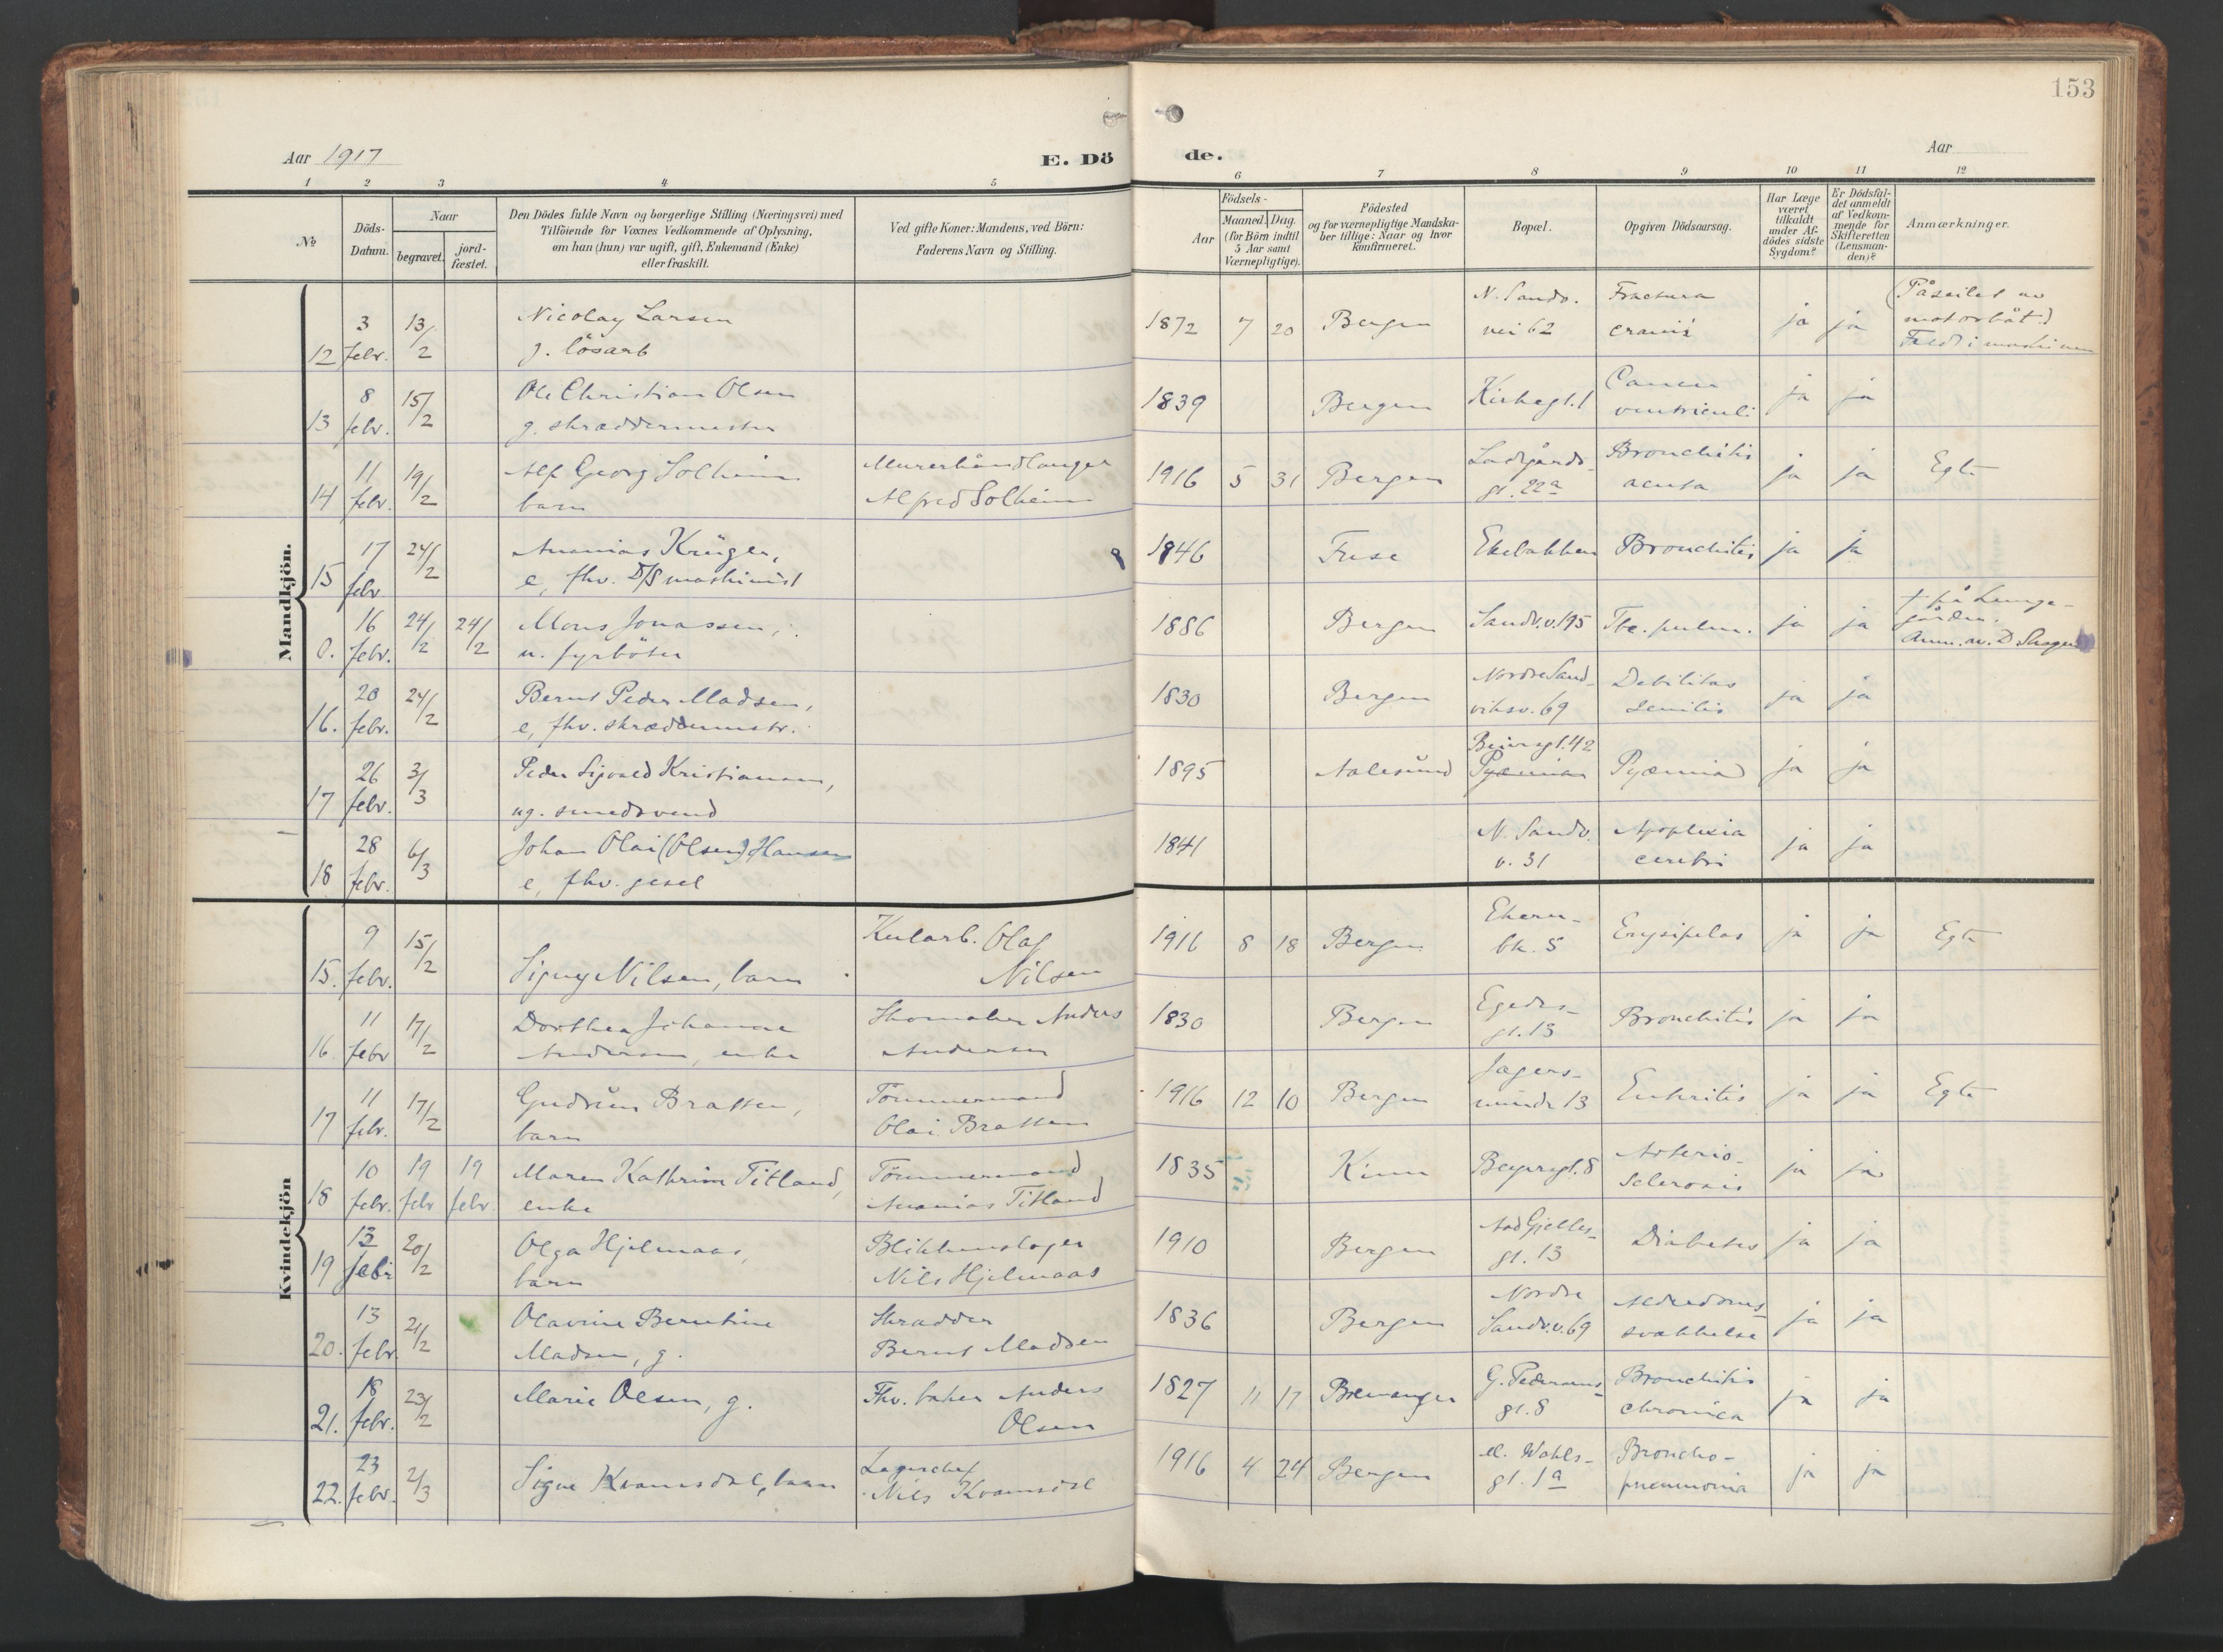 153
Aar 1917
E. Dö
de.
Aar
1 2 3 4 5 6 7 8 9 10 11 12
№
Döds-
Datum.
Naar
begravet.
jord-
fæstet.
Den Dödes fulde Navn og borgerlige Stilling (Næringsvei) med
Tilföiende for Voxnes Vedkommende af Oplysning,
om han (hun) var ugift, gift, Enkemand (Enke)
eller fraskilt.
Ved gifte Koner: Mandens, ved Börn:
Faderens Navn og Stilling.
Födsels-
Aar
Maaned. Dag.
(for Börn indtil
5 Aar samt
Værnepligtige).
Födested
og for værnepligtige Mandska-
ber tillige: Naar og hvor
konfirmeret.
Bopæl.
Opgiven Dödsaarsag.
Har Læge
været
tilkaldt
under Af-
dödes sidste
Sygdom?
Er Dödsfal-
det anmeldt
af Vedkom-
mende for
Skifteretten
(Lensman-
den)?
Anmærkninger.
Mandkjön.
12 3 febr. 13/2
Nicolay Larsen
g. lösarb
1872 7 20 Bergen
N. Sandv.
vei 62
Fractura
cranii
ja ja
(Påseilet av
motorbåt)
13 8 febr. 15/2
Ole Christian Olsen
g. skræddermester
1839 Bergen Kirkegt. 1
Cancer
ventriculi
ja ja
14 11 febr. 19/2
Alf Georg Solheim
barn
Murerhåndlanger
Alfred Solheim
1916 5 31 Bergen
Ladegårds-
gt. 22a
Bronchitis
acuta
ja ja Egte
15 17 febr 24/2
Ananias Krüger,
e, fhv. D/S maskinist
1846 Fuse Ekebakken Bronchitis ja ja
0. 16 febr. 24/2 24/2
Mons Jonassen,
u. fyrböter
1886 Bergen Sandv.v. 195 Tbc. pulm. ja ja
† på Lunge-
gården.
Anm. av D. Skagen
16. 20 febr. 24/2
Bernt Peder Madsen,
e, fhv. skræddermstr.
1830 Bergen
Nordre Sand-
viksv. 69
Debilitas
senilis
ja ja
17 26 febr. 3/3
Peder Sigvald Kristiansen,
ug. smedsvend
1895 Aalesund
Pyæmia
ja ja
18 28 febr. 6/3
Johan Olai (Olsen) Hansen
e, fhv. gesel
1841
N. Sandv.
v. 31
Apoplexia
cerebri
ja ja
Kvindekjön
15. 9 febr. 15/2
Signy Nilsen, barn
Kularb. Olaf
Nilsen
1916 8 18 Bergen
Ekern-
bk. 5
Erysipelas
ja ja Egte
16. 11 febr 17/2
Dorthea Johanne
Andersen, enke
Skomaker Anders
Andersen
1830 Bergen
Egedes-
gt. 13
Bronchitis
ja ja
17 11 febr. 17/2
Gudrun Bratten,
barn
Tömmermand
Olai Bratten
1916 12 10 Bergen
Jægers-
minde 13
Enteritis
ja ja Egte
18 10 febr. 19 febr 19 febr.
Maren Kathrine Titland,
enke
Tömmermand
Ananias Titland
1835 Kinn
Arterio-
sclerosis
ja ja
19 13 febr 20/2
Olga Hjelmaas,
barn
Blikkenslager
Nils Hjelmaas
1910 Bergen
Aad Gjelles-
gt. 13
Diabetes
ja ja
20. 13 febr. 21/2
Olavine Berntine
Madsen, g.
Skrædder
Bernt Madsen
1836 Bergen
Nordre
Sandv.v. 69
Alderdoms-
svækkelse
ja ja
21. 18 febr. 23/2
Marie Olsen, g.
Fhv. baker Anders
Olsen
1827 11 17 Bremanger
G. Pedersens-
gt. 8
Bronchitis
chronica
ja ja
22. 23 febr. 2/3
Signe Kvamsdal, barn
Lagerchef
Nils Kvamsdal
1916 4 24 Bergen
M. Wahls-
gt. 1a
Broncho-
pneumonia
ja ja